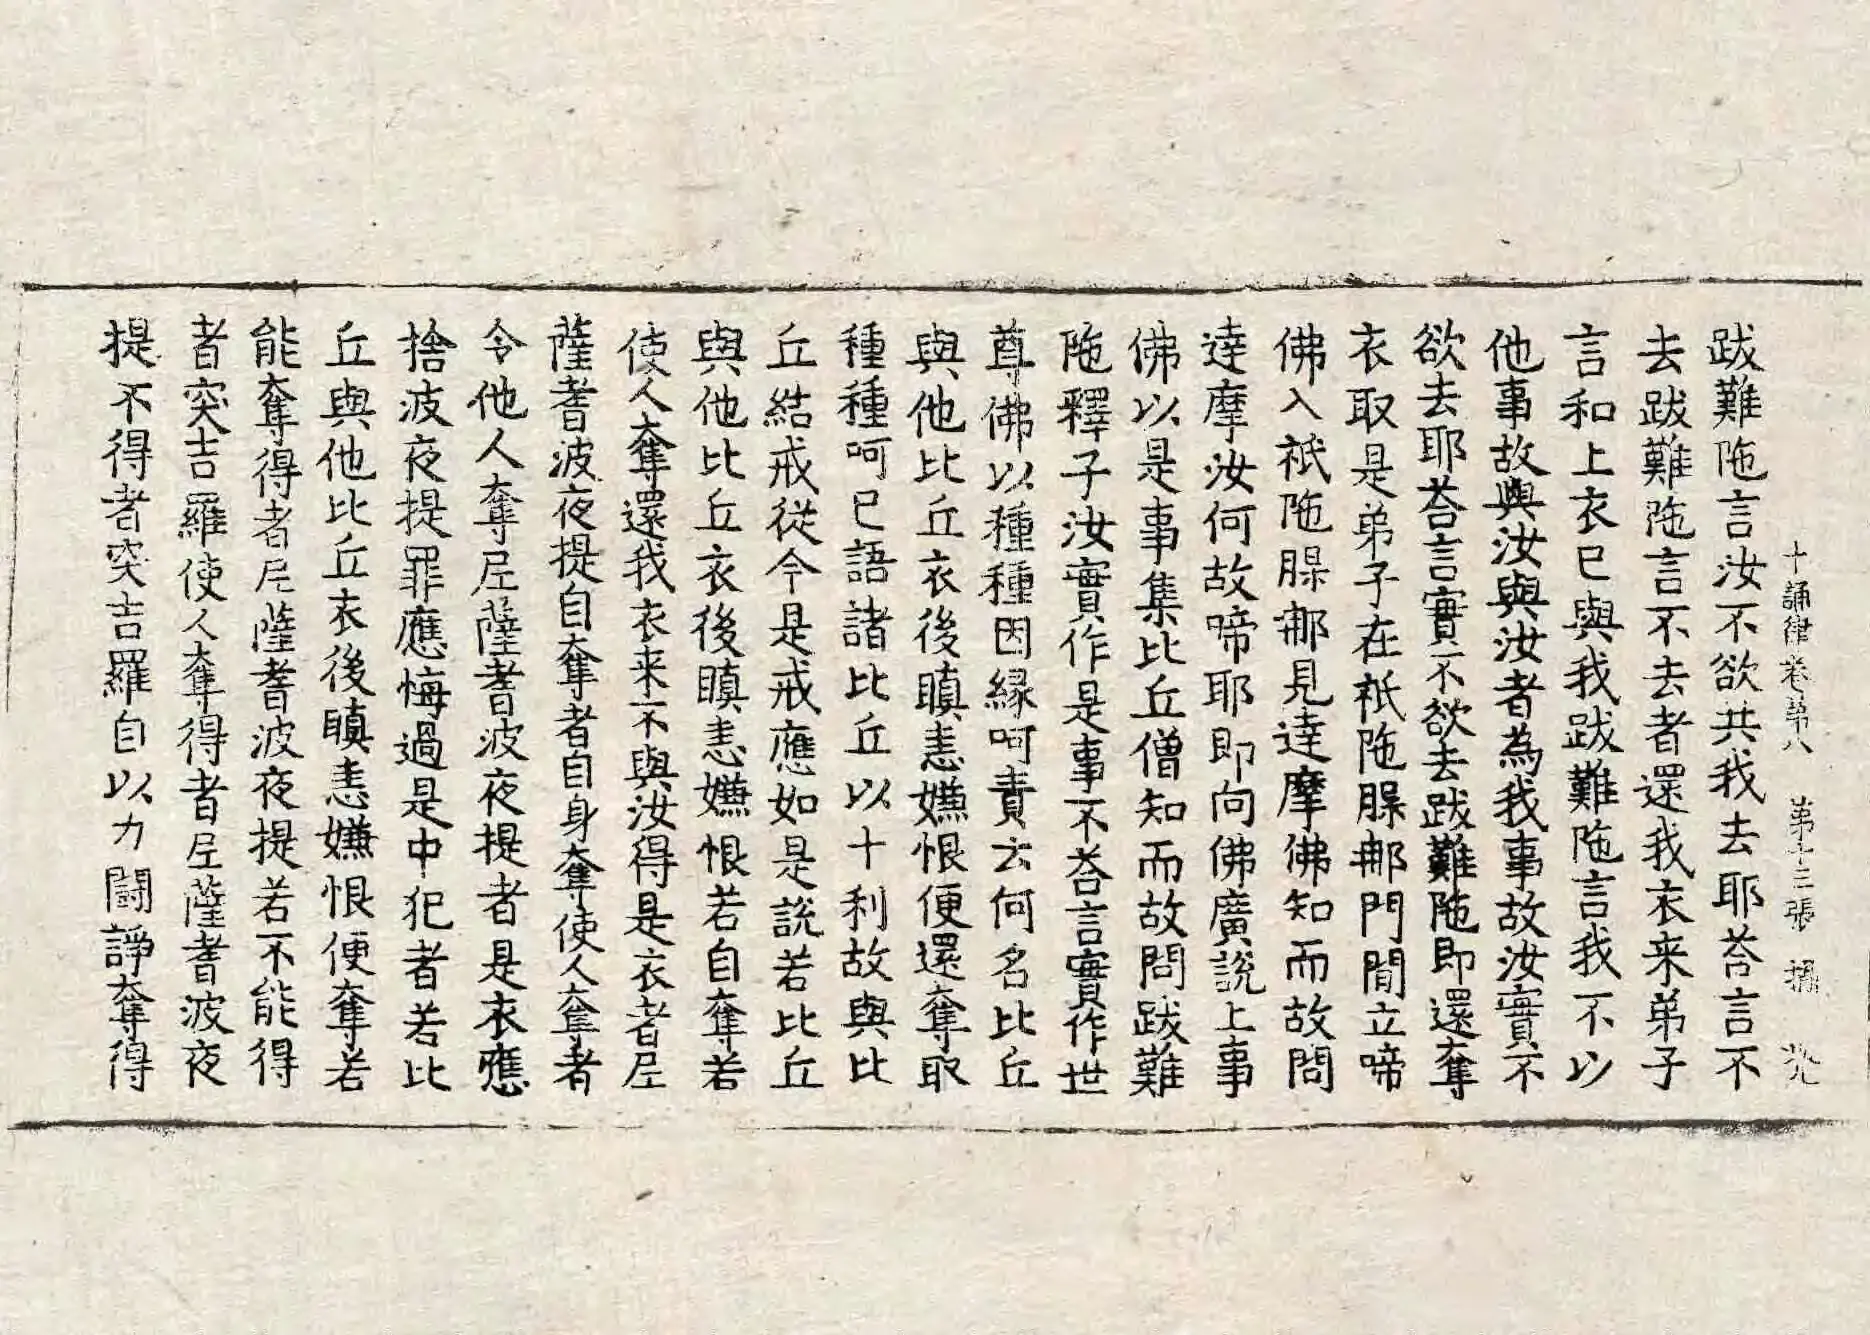 十誦律卷第八 第十三張 攝
跋難陁言汝不欲共我去耶荅言不
去跋難陁言不去者還我衣来弟子
言和上衣已與我跋難陁言我不以
他事故與汝與汝者為我事故汝實不
欲去耶荅言實不欲去跋難陁即還奪
衣取是弟子在祇陁腂𨙻門閒立啼
佛入祇陁腂𨙻見達摩佛知而故問
達摩汝何故啼耶即向佛廣說上事
佛以是事集比丘僧知而故問跋難
陁釋子汝實作是事不荅言實作世
尊佛以種種因縁呵責云何名比丘
與他比丘衣後瞋恚嫌恨便還奪取
種種呵已語諸比丘以十利故與比
丘結戒從今是戒應如是說若比丘
與他比丘衣後瞋恚嫌恨若自奪若
使人奪還我衣来不與汝得是衣者尼
薩耆波夜提自奪者自身奪使人奪者
令他人奪尼薩耆波夜提者是衣應
捨波夜提罪應悔過是中犯者若比
丘與他比丘衣後瞋恚嫌恨便奪若
能奪得者尼薩耆波夜提若不能得
者突吉羅使人奪得者尼薩耆波夜
提不得者突吉羅自以力鬪諍奪得